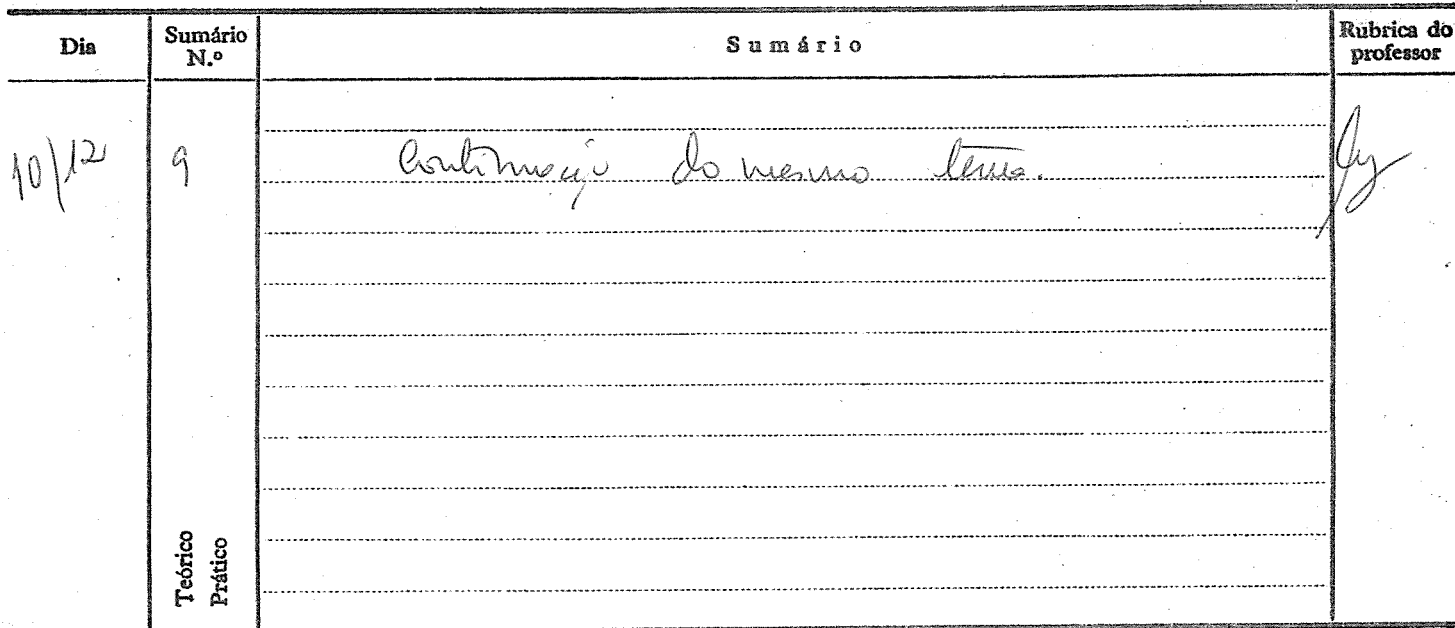 Dia Sumário N.º Sumário Rúbrica do professor
10/12 9 Continuação do mesmo tema.
Teórico
Prático